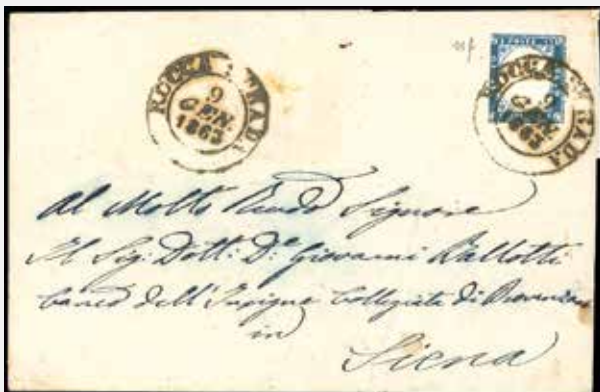 ROCCA STRADA
9
GEN.
1863
ROCCA STRADA
9
GEN.
1863
Al Molto Revdo Signore
Il Sig: Dott: Dn Giovanni Ballotti
dell'Insigne Collegiata di Provenzano
in
Siena